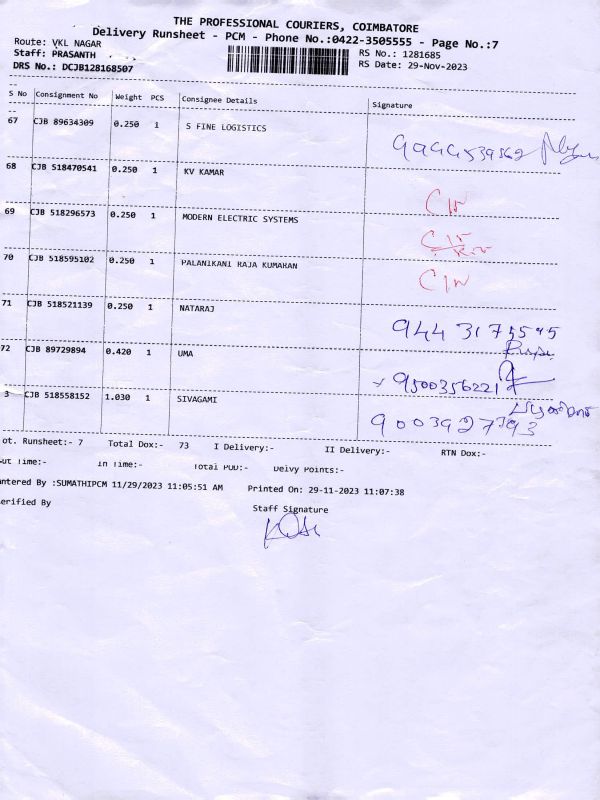 THE PROFESSIONAL COURIERS, COIMBATORE
Delivery Runsheet - PCM - Phone No.:0422-3505555 - Page No.:7
Route: VKL NAGAR RS No.: 1281685
Staff: PRASANTH RS Date: 29-Nov-2023
DRS No.: DCJB128168507
S No Consignment No Weight PCS Consignee Details Signature
67 CJB 89634309 0.250 1 S FINE LOGISTICS
68 CJB 518470541 0.250 1 KV KAMAR
69 CJB 518296573 0.250 1 MODERN ELECTRIC SYSTEMS
70 CJB 518595102 0.250 1 PALANIKANI RAJA KUMARAN
71 CJB 518521139 0.250 1 NATARAJ
72 CJB 89729894 0.420 1 UMA 9500356221
3 CJB 518558152 1.030 1 SIVAGAMI 9003927393
ot. Runsheet:- 7 Total Dox:- 73 I Delivery:- II Delivery:- RTN Dox:-
out Time:- In Time:- Total POD:- Delvy Points:-
ntered By :SUMATHIPCM 11/29/2023 11:05:51 AM Printed On: 29-11-2023 11:07:38
erified By Staff Signature